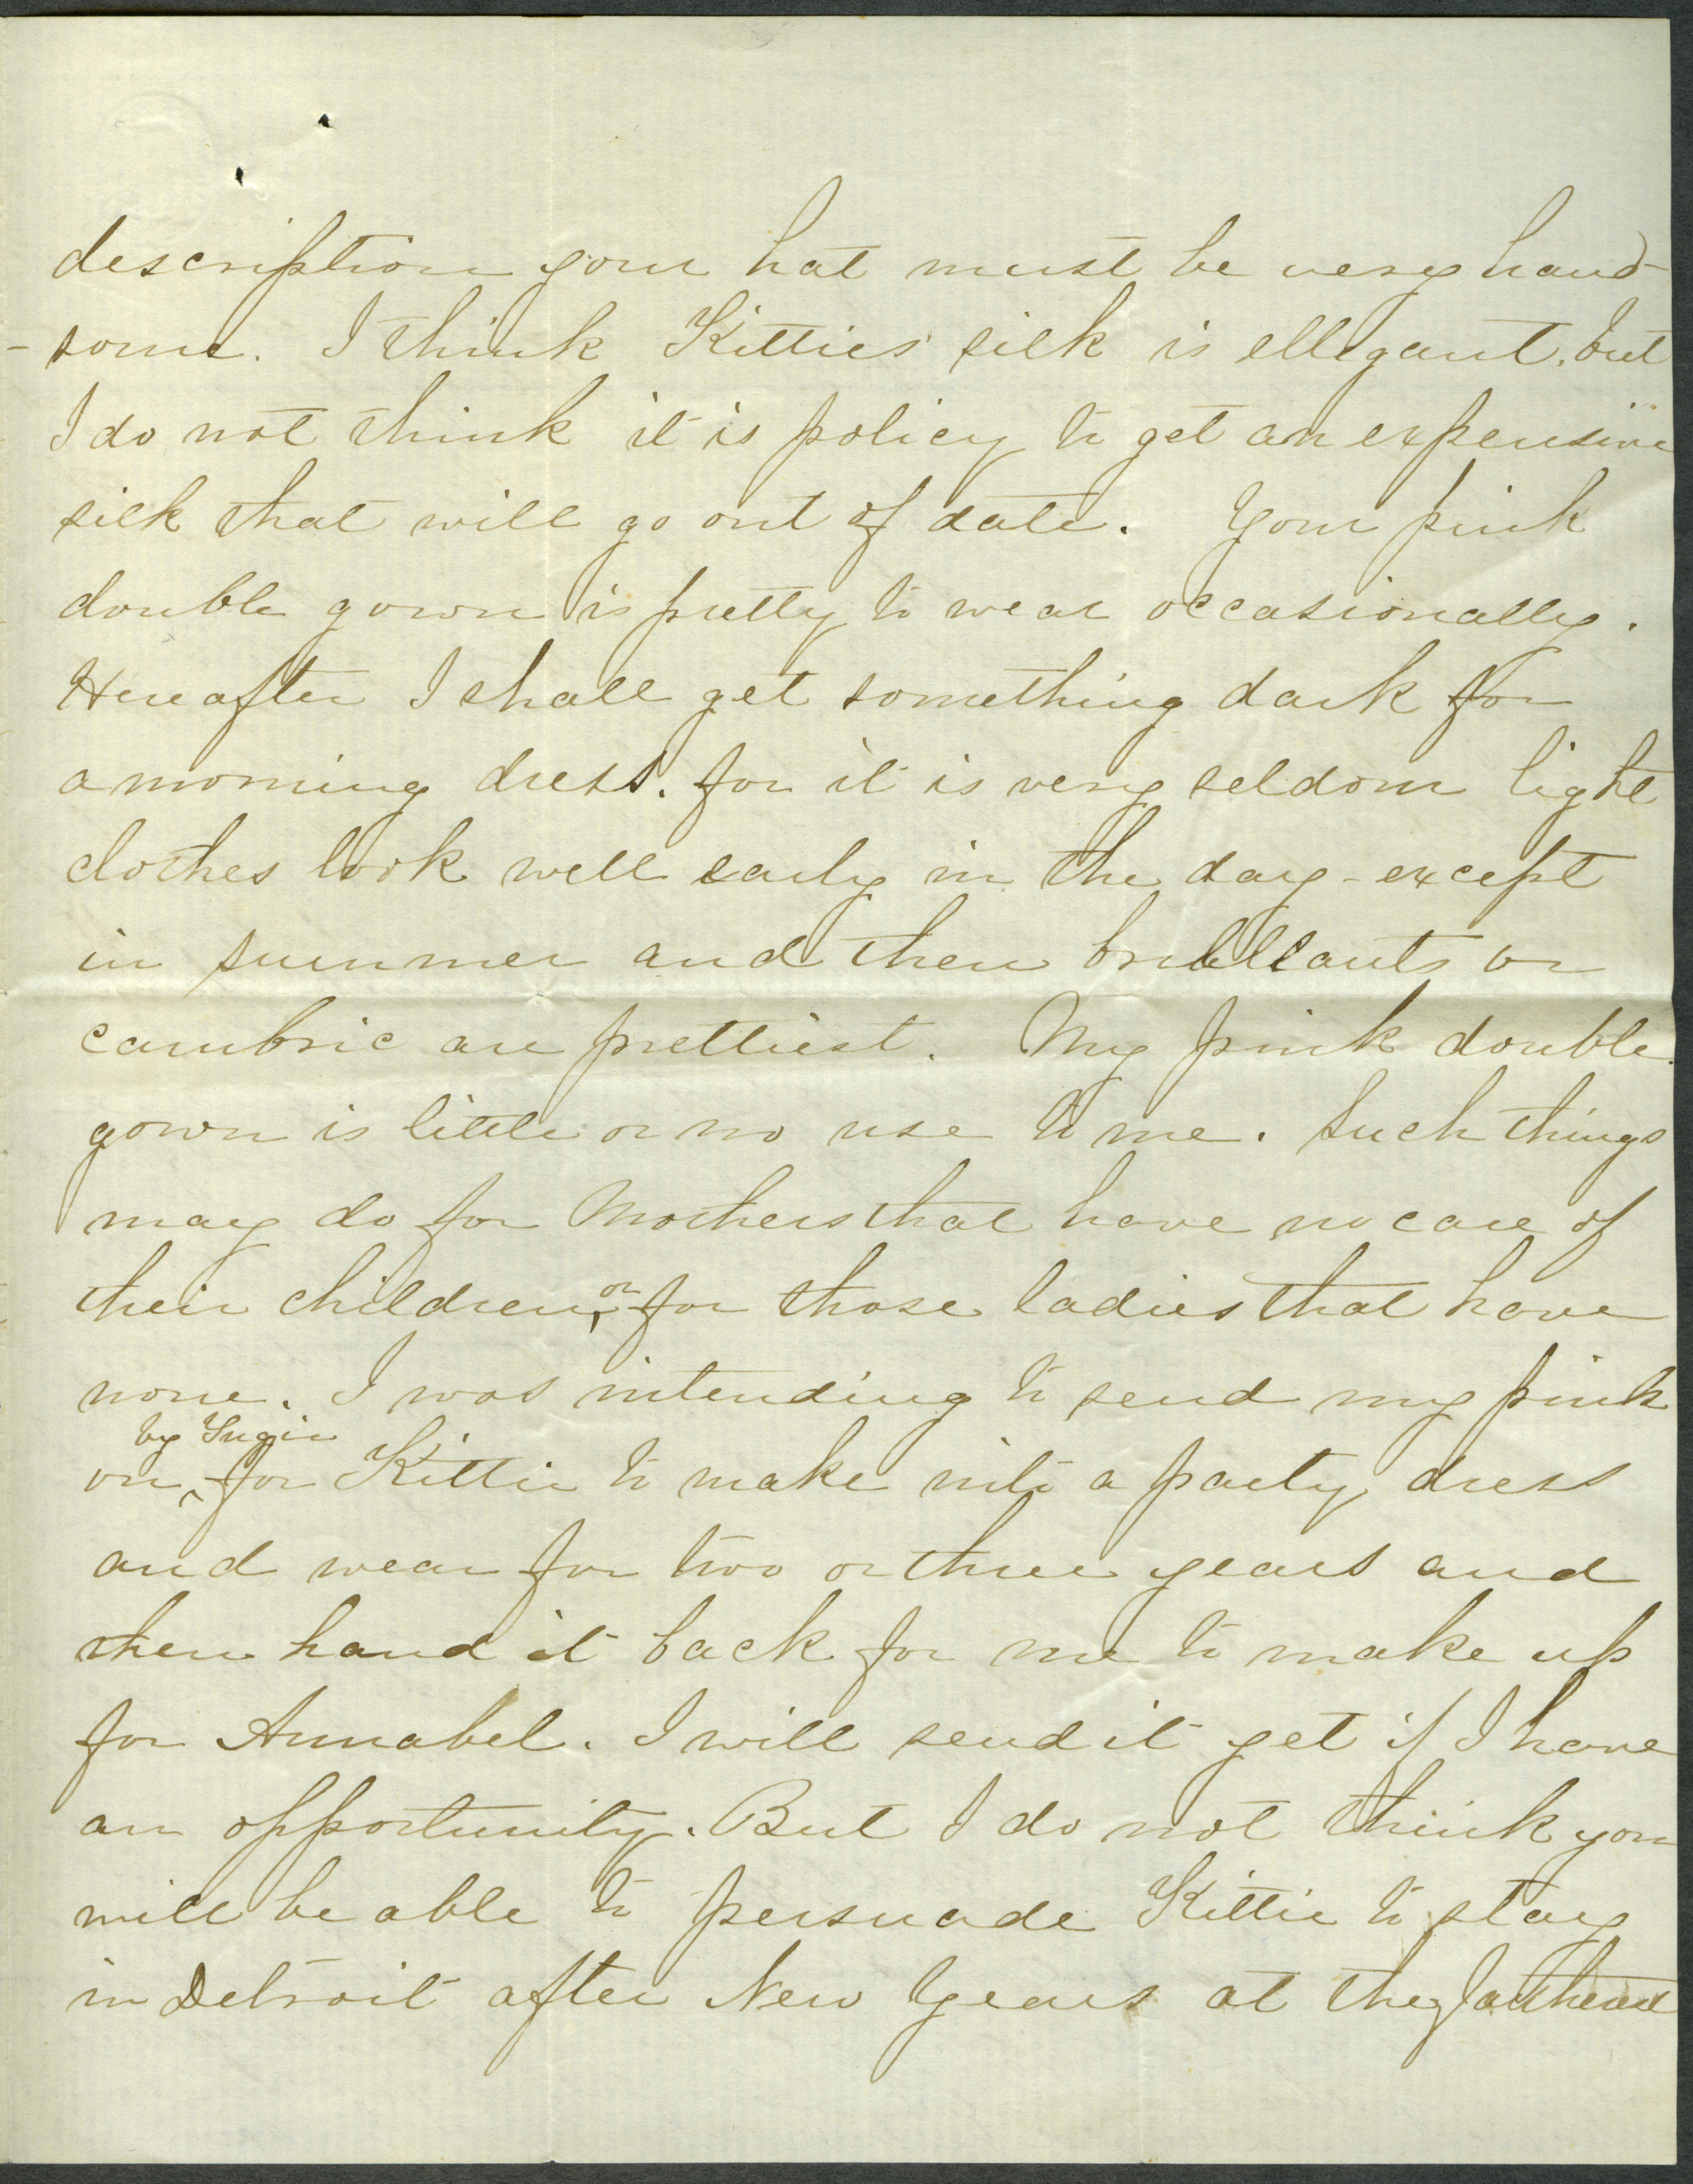 description your hat must be very hand-
-some. I think Kitties' silk is ellegant, but
I do not think it is policy to get an expensive
silk that will go out of date. Your pink
double gown is pretty to wear occasionally.
Hereafter I shall get something dark for
a morning dress. for it is very seldom light
clothes look well early in the day - except
in summer and then brilliants or
cambric are prettiest. My pink double
gown is little or no use to me. Such things
may do for Mothers that have no care of
their children, or for those ladies that have
none. I was intending to send my pink
by
on, for Kittie to make into a party dress
and wear for two or three years and
then hand it back for me to make up
for Annabel. I will send it yet if I have
an opportunity. But I do not think you
will be able to persuade Kittie to stay
in Detroit after New Years at the